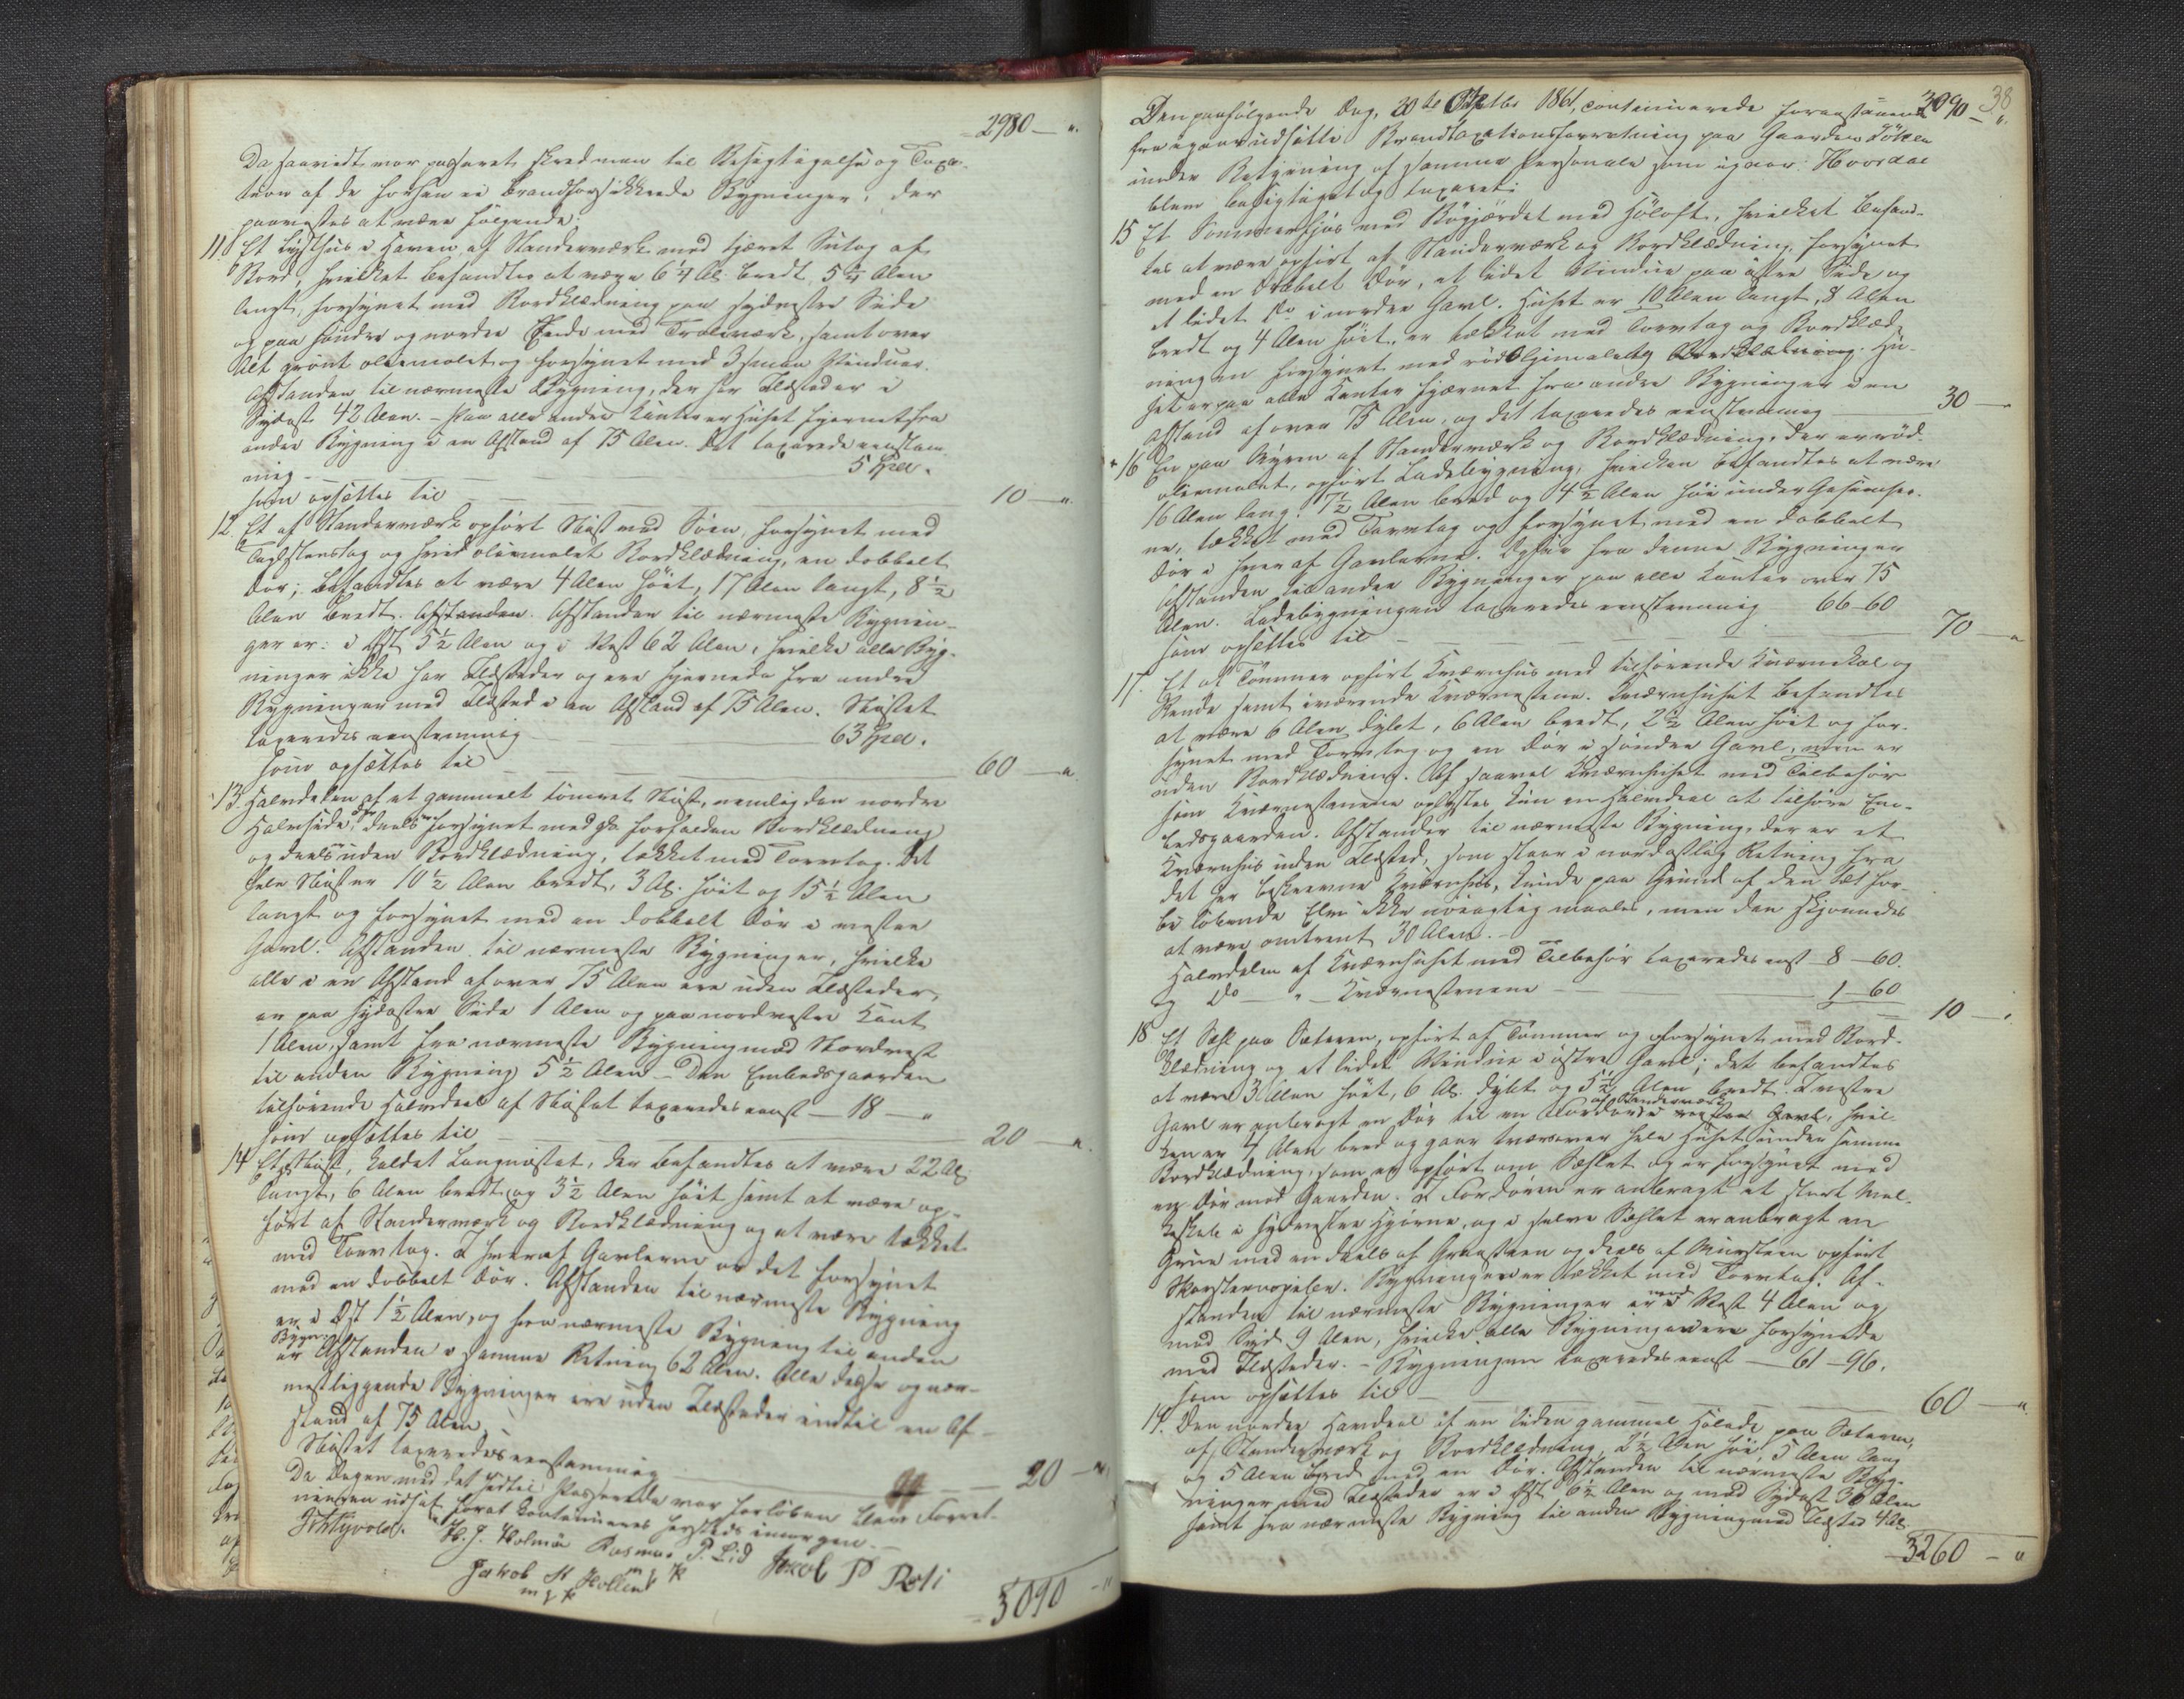 2980 — "
Da saavidt var passeret skred man til Besigtigelse og Taxa-
tion af de forhen ei brandforsikkrede Bygninger, der
paavistes at være følgende:
11. Et Lysthus i Haven af Standerværk med tjæret Sutag af
Bord, hvilket befandtes at være 6 1/4 Al. bredt 5 3/4 Alen
langt, forsynet med Bordklædning paa sydvestre Side
og paa søndre og nordre Ende med Tralværk, samt over
Alt grønt oliemalet og forsynet med 3 smaa Vinduer.
Afstanden til nærmeste Bygning, der har Ildsteder i
Sydost 42 Alen. – Paa alle andre Kanter er Huset fjernet fra
andre Bygning i en Afstand af 75 Alen. Det taxeredes eenstem-
mig — 5 Spd.
som opsættes til — 10 — "
12. Et af Standerværk opført Nøst ved Søen, forsynet med
Taglsteenstag og hvid oliemalet Bordklædning, en dobbelt
Dør; befandtes at være 4 Alen høit, 17 Alen langt, 8 1/2
Alen bredt. Afstanden. Afstanden til nærmeste Bygnin-
ger er: i Øst 5 1/2 Alen og i Vest 62 Alen, hvilke alle Byg-
ninger ikke har Ildsteder og ere fjernede fra andre
Bygninger med Ildsted i en Afstand af 75 Alen. Nøstet
taxeredes eenstemmig — 63 Spd.
som opsættes til — 60 — "
13. Halvdelen af et gammelt tømret Nøst, nemlig den nordre
Halvside, deels forsynet med forfalden Bordklædning
og deels uden Bordklædning, tækket med Torvtag. Det
hele Nøst er 10 1/2 Alen bredt, 3 Al. høit og 15 1/2 Alen
langt og forsynet med en dobbelt Dør i vestre
Gavl. Afstanden til nærmeste Bygninger, hvilke
alle i en Afstand af over 75 Alen ere uden Ildsteder,
er paa sydostre Side 1 Alen og paa nordvestre Kant
1 Alen, samt fra nærmeste Bygning mod Nordvest
til anden Bygning 5 1/2 Alen. – Den Embedsgaarden
tilhørende Halvdeel af Nøstet taxeredes eenst — 18 — "
som opsættes til — 20 — "
14 Et Nøst, kaldet Langnøstet, der befandtes at være 22 Al.
langt, 6 Alen bredt og 3 1/2 Alen høit samt at være op-
ført af Standerværk og Bordklædning og at være tækket
med Torvtag. I hver af Gavlerne er det forsynet
med en dobbelt Dør. Afstanden til nærmeste Bygning
er i Øst 1 1/2 Alen, og fra nærmeste Bygning til anden
Bygn.
er Afstanden i samme Retning 62 Alen. Alle disse og nær-
mestliggende Bygninger ere uden Ildsteder indtil en Af-
stand af 75 Alen.
Nøstet taxeredes eenstemmig — 20 — "
Da Dagen med det hidtil Passerede var forløben blev Forret-
ningen udsat forat kontinueres her paa Stedet imorgen. –
H. J. Holmøe Rasmus P. Lid Jakob P Roti
m f P
Jakob H Hollen
m f P
3090 — "
38
Den paafølgende Dag, 20de Octbr 1861, continuerede foranstaaende 3090 — "
fra igaar udsatte Brandtaxationsforretning paa Gaarden
under Bestyrning af samme Personale som igaar. Hvorda
blev besigtiget og taxeret:
15 Et Sommerfjøs med Bøgjærdet med Høloft, hvilket befand-
tes at være opført af Standerværk og Bordklædning, forsynet
med en dobbelt Dør, et lidet Vindue paa østre Side og
et lidet Do i nordre Gavl. Huset er 10 Alen langt, 8 Alen
bredt og 4 Alen høit, er tækket med Torvtag og Bordklæd-
ningen forsynet med rød Oljemaling Bordklædning. Hu-
set er paa alle Kanter fjærnet fra andre Bygninger i en
Afstand af over 75 Alen, og det taxeredes eenstemmig — 30 —
16 En paa Myren af Standerværk og Bordklædning, der er rød
oliemalet, opført Ladebygning, hvilken befandtes at være
16 Alen lang, 7 1/2 Alen bred og 4 1/2 Alen høi under Gesimser-
ne, tækket med Torvtag og forsynet med en dobbelt
Dør i hver af Gavlerne. Ogsaa fra denne Bygninger
Afstanden til andre Bygninger paa alle Kanter over 75
Alen. Ladebygningen taxeredes eenstemmig 66 – 60
som opsættes til — 70 — "
17. Et af Tømmer opført Kværnhus med tilhørende Kværnekal og
Rende samt iværende Kværnestene. Kværnhuset befandtes
at være 6 Alen dybt, 6 Alen bredt, 2 1/2 Alen høit og for-
synet med Torvtag og en Dør i søndre Gavl, men er
uden Bordklædning. Af saavel Kværnhuset med Tilbehør
som Kværnestenene oplystes kun en Halvdeel at tilhøre Em-
bedsgaarden. Afstanden til nærmeste Bygning, der er et
Kværnhus uden Ildsted, som staar i nordostlig Retning fra
det her beskrevne Kværnhus, kunde paa Grund af den tæt for-
bi løbende Elv ikke nøiagtig maales, men den skjønnedes
at være omtrent 30 Alen. –
Halvdelen af Kværnhuset med Tilbehør taxeredes eenst 8 – 60.
og Do — " — Kværnestenene — 1 – 60
10 — "
18 Et Sæl paa Sæteren, opført af Tømmer og forsynet med Bord-
klædning og et lidet Vindue i østre Gavl; det befandtes
at være 3 Alen høit, 6 Al. dybt og 5 1/2 Alen bredt. I vestre
af Standerværk
Gavl er anbragt en Dør til en Fordør i vestre Gavl, hvil-
ken er 4 Alen bred og gaar tværsover hele Huset under samme
Bordklædning, som er opført om Sælet og er forsynet med
en Dør mod Gaarden. I Fordøren er anbragt et stort Mel-
keskab i sydvestre Hjørne, og i selve Sælet er anbragt en
Grue med en deels af Graasteen og deels af Mursteen opført
Skorsteenspibe. Bygningen er tækket med Torvtag. Af-
standen til nærmeste Bygninger er mod Vest 4 Alen og
mod Syd 9 Alen, hvilke alle Bygninger ere forsynede
med Ildsteder. – Bygningen taxeredes eenst — 61 – 96.
som opsættes til — 60 — "
19. Den nordre Halvdeel af en liden gammel Hølade paa Sæteren,
af Standerværk og Bordklædning, 2 1/2 Alen høi, 5 Alen lang
og 5 Alen bred med en Dør. Afstanden til nærmeste Byg-
ninger med Ildsteder er i Øst 6 1/2 Alen og mod Sydost 30 Alen
samt fra nærmeste Bygning til anden Bygning med Ildsted 4 Al.
3260 — "